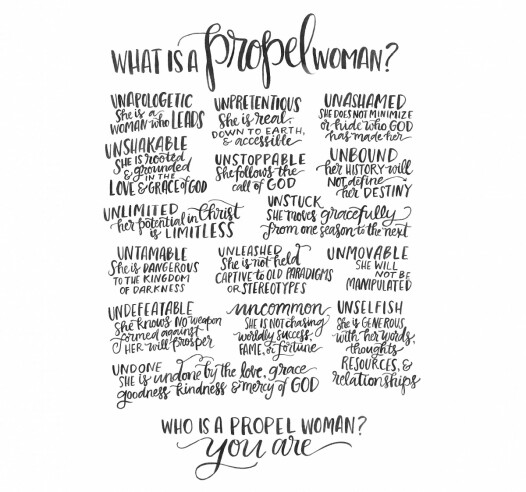 WHAT IS A propel WOMAN?
UNAPOLOGETIC
She is a
WOMAN who LEADS
UNPRETENTIOUS
She is real,
DOWN TO EARTH,
& accessible
UNASHAMED
SHE DOES NOT MINIMIZE
or hide who GOD
has made her
UNSHAKABLE
SHE IS rooted
& grounded
IN THE
LOVE & GRACE of GOD
UNSTOPPABLE
She follows the
call of GOD
UNBOUND
her HISTORY will
NOT define
her DESTINY
UNLIMITED
her potential in Christ
is LIMITLESS
UNSTUCK
SHE moves gracefully
from one season to the next
UNTAMABLE
She is DANGEROUS
TO THE KINGDOM
OF DARKNESS
UNLEASHED
She is not held
CAPTIVE to OLD PARADIGMS
OR STEREOTYPES
UNMOVABLE
SHE WILL
NOT BE
MANIPULATED
UNDEFEATABLE
She knows NO weapon
formed against
HER will prosper
uncommon
SHE IS NOT chasing
worldly success,
FAME, or fortune
UNSELFISH
She is GENEROUS,
with her words,
thoughts
RESOURCES, &
relationships
UNDONE
SHE is undone by the love, grace
goodness kindness & mercy of GOD
WHO IS A PROPEL WOMAN?
you are